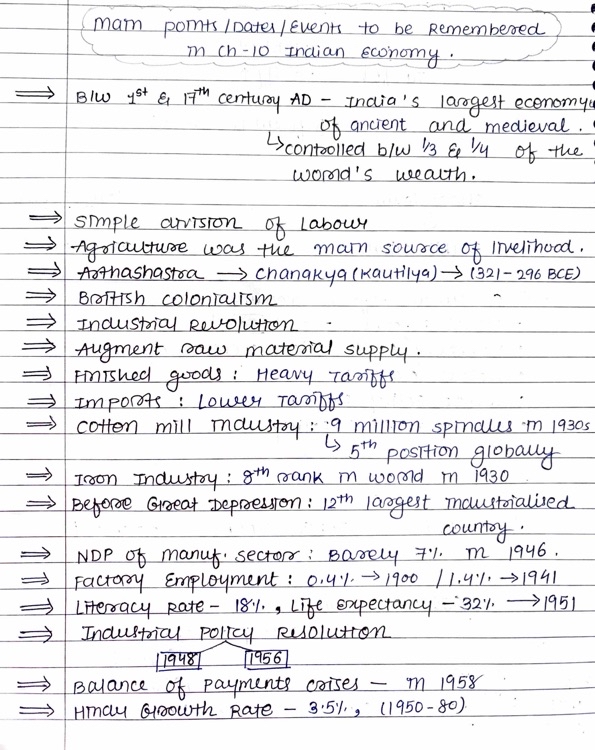 Main points/Dates/Events to be Remembered
in Ch-10 Indian Economy.
⇒ B/w 1st & 17th century AD - India's largest economy
of ancient and medieval.
↳ controlled b/w 1/3 & 1/4 of the
world's wealth.
⇒ Simple division of Labour
⇒ Agriculture was the main source of livelihood.
⇒ Arthashastra → Chanakya (Kautilya) → (321-296 BCE)
⇒ British colonialism
⇒ Industrial Revolution
⇒ Augment raw material supply.
⇒ Finished goods : Heavy Tariffs
⇒ Imports : Lower Tariffs
⇒ Cotton mill Industry : 9 million spindles in 1930s
↳ 5th position globally
⇒ Iron Industry : 8th rank in world in 1930
⇒ Before Great Depression : 12th largest industrialised
country.
⇒ NDP of manuf. sector : Barely 7% in 1946.
⇒ Factory Employment : 0.4% → 1900 / 1.4% → 1941
⇒ Literacy Rate - 18%, Life expectancy - 32% → 1951
⇒ Industrial Policy Resolution
1948 1956
⇒ Balance of payments crises - in 1958
⇒ Hindu Growth Rate - 3.5%, (1950-80)